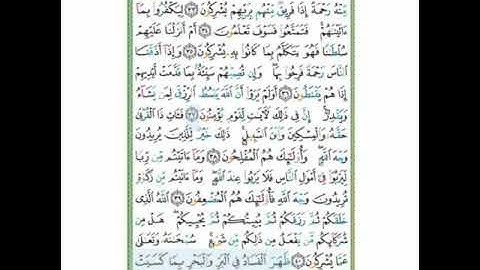 مِّنْهُ رَحْمَةً إِذَا فَرِيقٌ مِّنْهُم بِرَبِّهِمْ يُشْرِكُونَ ٣٣ لِيَكْفُرُوا۟ بِمَا
ءَاتَيْنَٰهُمْ ۚ فَتَمَتَّعُوا۟ فَسَوْفَ تَعْلَمُونَ ٣٤ أَمْ أَنزَلْنَا عَلَيْهِمْ
سُلْطَٰنًا فَهُوَ يَتَكَلَّمُ بِمَا كَانُوا۟ بِهِۦ يُشْرِكُونَ ٣٥ وَإِذَآ أَذَقْنَا
ٱلنَّاسَ رَحْمَةً فَرِحُوا۟ بِهَا ۖ وَإِن تُصِبْهُمْ سَيِّئَةٌۢ بِمَا قَدَّمَتْ أَيْدِيهِمْ
إِذَا هُمْ يَقْنَطُونَ ٣٦ أَوَلَمْ يَرَوْا۟ أَنَّ ٱللَّهَ يَبْسُطُ ٱلرِّزْقَ لِمَن يَشَآءُ
وَيَقْدِرُ ۚ إِنَّ فِى ذَٰلِكَ لَءَايَٰتٍ لِّقَوْمٍ يُؤْمِنُونَ ٣٧ فَـَٔاتِ ذَا ٱلْقُرْبَىٰ
حَقَّهُۥ وَٱلْمِسْكِينَ وَٱبْنَ ٱلسَّبِيلِ ۚ ذَٰلِكَ خَيْرٌ لِّلَّذِينَ يُرِيدُونَ
وَجْهَ ٱللَّهِ ۖ وَأُو۟لَٰٓئِكَ هُمُ ٱلْمُفْلِحُونَ ٣٨ وَمَآ ءَاتَيْتُم مِّن رِّبًا
لِّيَرْبُوَا۟ فِىٓ أَمْوَٰلِ ٱلنَّاسِ فَلَا يَرْبُوا۟ عِندَ ٱللَّهِ ۖ وَمَآ ءَاتَيْتُم مِّن زَكَوٰةٍ
تُرِيدُونَ وَجْهَ ٱللَّهِ فَأُو۟لَٰٓئِكَ هُمُ ٱلْمُضْعِفُونَ ٣٩ ٱللَّهُ ٱلَّذِى
خَلَقَكُمْ ثُمَّ رَزَقَكُمْ ثُمَّ يُمِيتُكُمْ ثُمَّ يُحْيِيكُمْ ۖ هَلْ مِن
شُرَكَآئِكُم مَّن يَفْعَلُ مِن ذَٰلِكُم مِّن شَىْءٍ ۚ سُبْحَٰنَهُۥ وَتَعَٰلَىٰ
عَمَّا يُشْرِكُونَ ٤٠ ظَهَرَ ٱلْفَسَادُ فِى ٱلْبَرِّ وَٱلْبَحْرِ بِمَا كَسَبَتْ